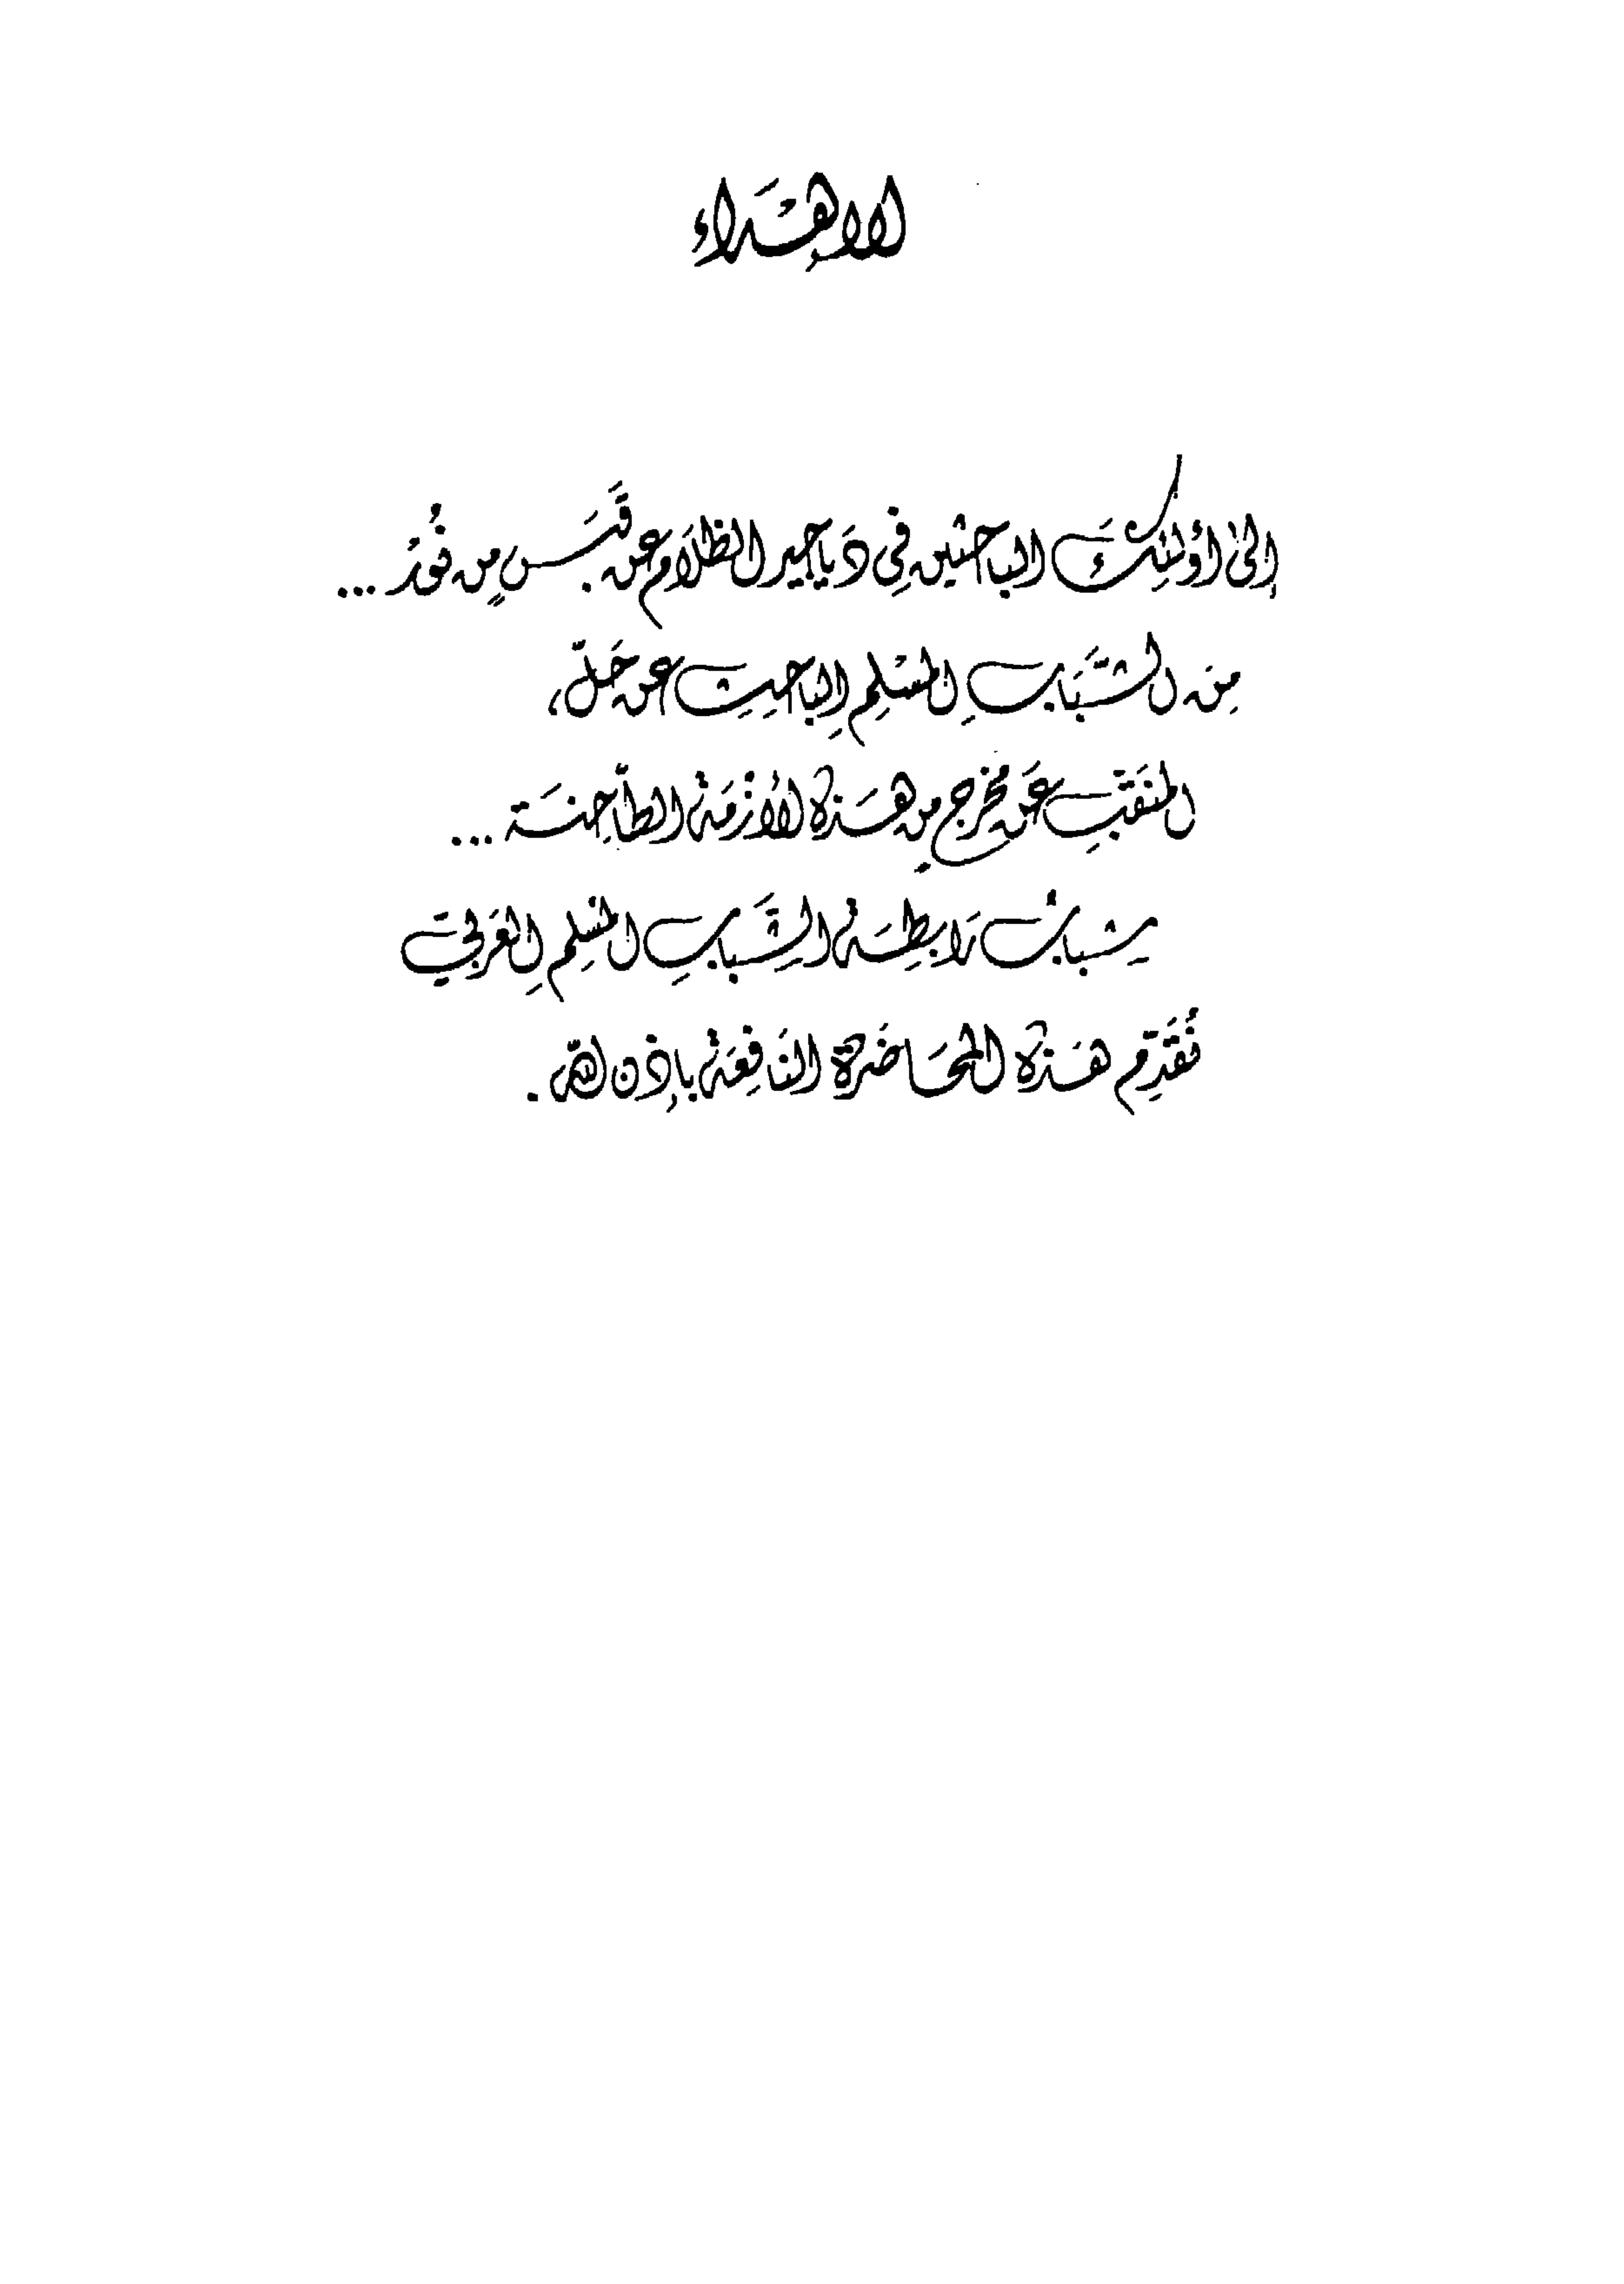 الإهْدَاء
إلى أولئِكَ الباحثين فِي دَياجير الظلَام عن قَبَسٍ من نُورْ ...
مِن الشَّبَابِ المسْلِمِ الباحِثِ عن حَلّ،
المنَقّبِ عَن مخرجٍ من هَذه الأزْمَة الطّاحِنَة ...
شباب رَابِطَة الشَّبابِ المسْلِمِ العَرَبيّ
نُقَدِّم هَذه المحَاضَرة النَافِعَة بإذن الله .